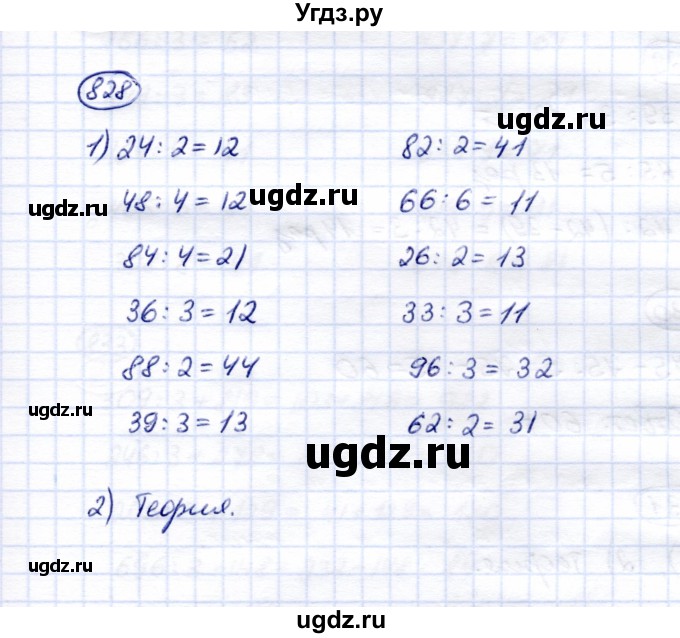 Угдз.ру
828
1) 24 : 2 = 12 82 : 2 = 41
48 : 4 = 12 66 : 6 = 11
84 : 4 = 21 26 : 2 = 13
36 : 3 = 12 33 : 3 = 11
88 : 2 = 44 96 : 3 = 32
39 : 3 = 13 62 : 2 = 31
2) Теория.
ugdz.ru
ugdz.ru
ugdz.ru
ugdz.ru
ugdz.ru
ugdz.ru
ugdz.ru